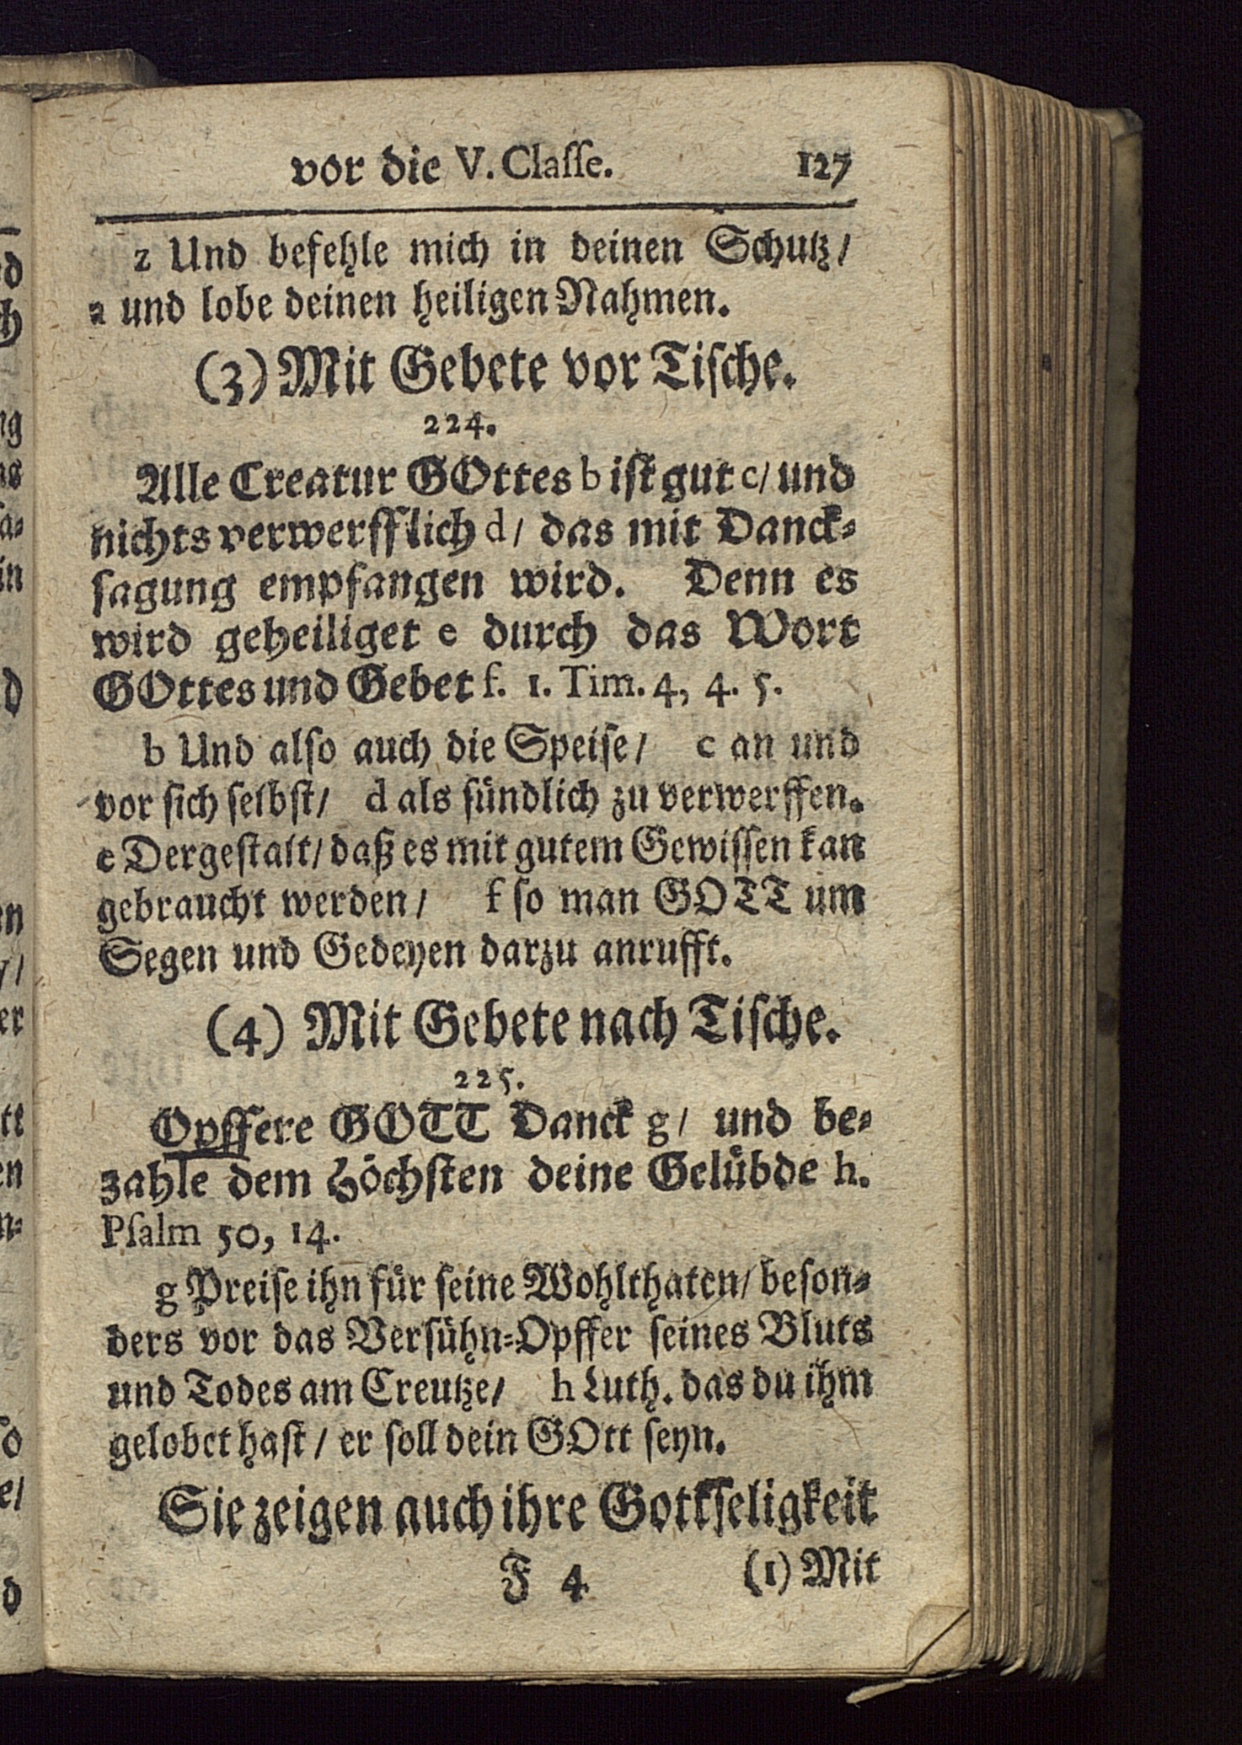 vor die V. Claſſe. 127
z Und befehle mich in deinen Schutz/
a und lobe deinen heiligen Nahmen.
(3) Mit Gebete vor Tiſche.
224.
Alle Creatur GOttes b iſt gut c/ und
nichts verwerfflich d/ das mit Danck-
ſagung empfangen wird. Denn es
wird geheiliget e durch das Wort
GOttes und Gebet f. 1. Tim. 4, 4. 5.
b Und alſo auch die Speiſe/ c an und
vor ſich ſelbſt/ d als ſündlich zu verwerffen.
e Dergeſtalt/ daß es mit gutem Gewiſſen kan
gebraucht werden/ f ſo man GOTT um
Segen und Gedeyen darzu anrufft.
(4) Mit Gebete nach Tiſche.
225.
Opffere GOTT Danck g/ und be-
zahle dem Höchſten deine Gelübde h.
Pſalm 50, 14.
g Preiſe ihn für ſeine Wohlthaten/ beſon-
ders vor das Verſühn-Opffer ſeines Bluts
und Todes am Creutze/ h Luth. das du ihm
gelobet haſt/ er ſoll dein GOtt ſeyn.
Sie zeigen auch ihre Gottſeligkeit
F 4 (1) Mit